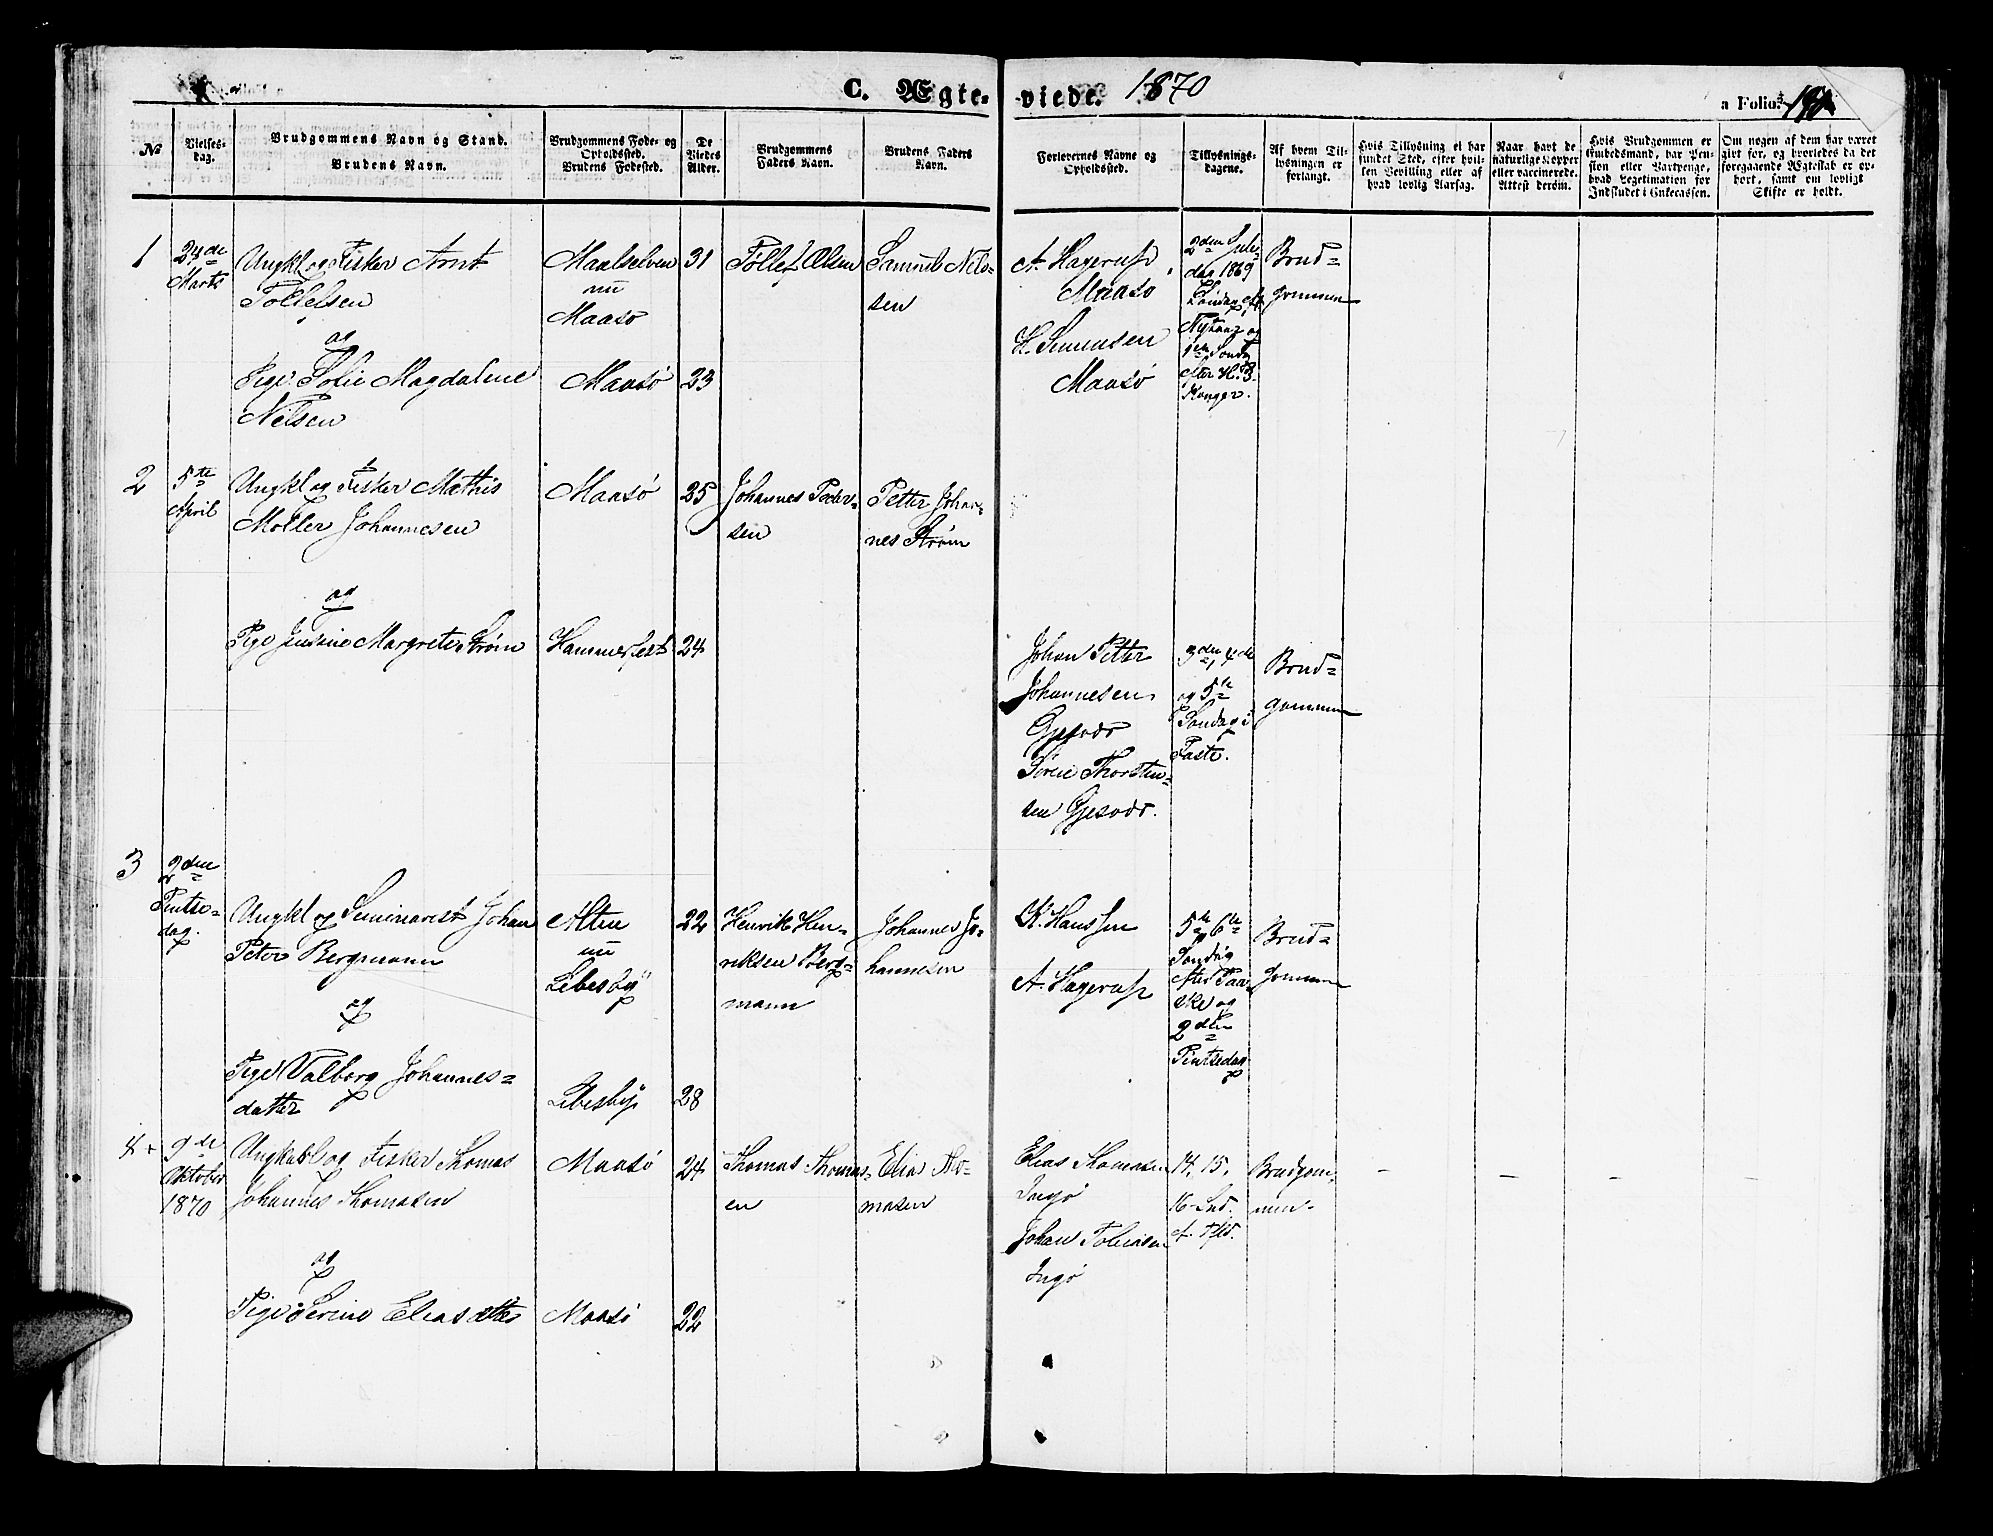 C. Ægte-
viede. 1870
a Folio.
№
Vielses-
dag.
Brudgommens Navn og Stand.
Brudens Navn.
Brudgommens Føde- og
Opholdssted.
Brudens Fødested.
De
Viedes
Alder.
Brudgommens
Faders Navn.
Brudens Faders
Navn.
Forlovernes Navne og
Opholdssted.
Tillysnings-
dagene.
Af hvem Til-
lysningen er
forlangt.
Hvis Tillysning ei har
fundet Sted, efter hvil-
ken Bevilling eller af
hvad lovlig Aarsag.
Naar havt de
naturlige Kopper
eller vaccinerede.
Attest derom.
Hvis Brudgommen er
Embedsmand, har Pen-
sion eller Vartpenge,
hvad Legitimation for
Indskudet i Enkecassen.
Om nogen af dem har været
gift før, og hvorledes da det
foregaaende Ægteskab er op-
hørt, samt om lovligt
Skifte er holdt.
1
Marts
Ungkl og Fisker Arnt
Tollefsen
og
Pige Magdalene
Nilsen
Maalselven
nu
Maasø
Maasø
31
23
Tollef Olsen
Samuel Nils-
sen
A. Hagerup
Maasø
Maasø
2den Jule-
dag 1869
Søndag
Nytaar og
Sønd.
Konger.
Brud-
gommen
2
5te
April
Ungkl og Fisker Mathis
Møller Johannesen
og
Pige Margrete Strøm
Maasø
Hammerfest
25
24
Johannes Peder-
sen
Petter Johan-
nes Strøm
Johan Petter
Johannesen
Gjesvær
Søren Thorsten-
sen Gjesvær.
3den, 4de
og 5te
Søndag i
Faste.
Brud-
gommen
3
2den
Pintse-
dag.
Ungkl og Seminarist Johan
Peter Bergmann
og
Pige Valborg Johannes-
datter
Alten
nu
Lebesby
Lebesby
22
28
Henrik Hen-
riksen Berg-
mann
Johannes Jo-
hannesen
K. Hanssen
A. Hagerup
5te 6te
Søndag
efter Paa-
ske og
2den
Pintsedag
Brud-
gommen
4
9de
Oktober
1870
Ungkarl og Fisker Thomas
Johannes Thomasen
og
Pige Serine Eliasdatter
Maasø
Maasø
24
22
Thomas Thomas-
en
Elias Tho-
masen
Elias Thomasen
Ingø
Johan Tobiasen
Ingø
14. 15.
16. Snd.
Brudgom-
men.